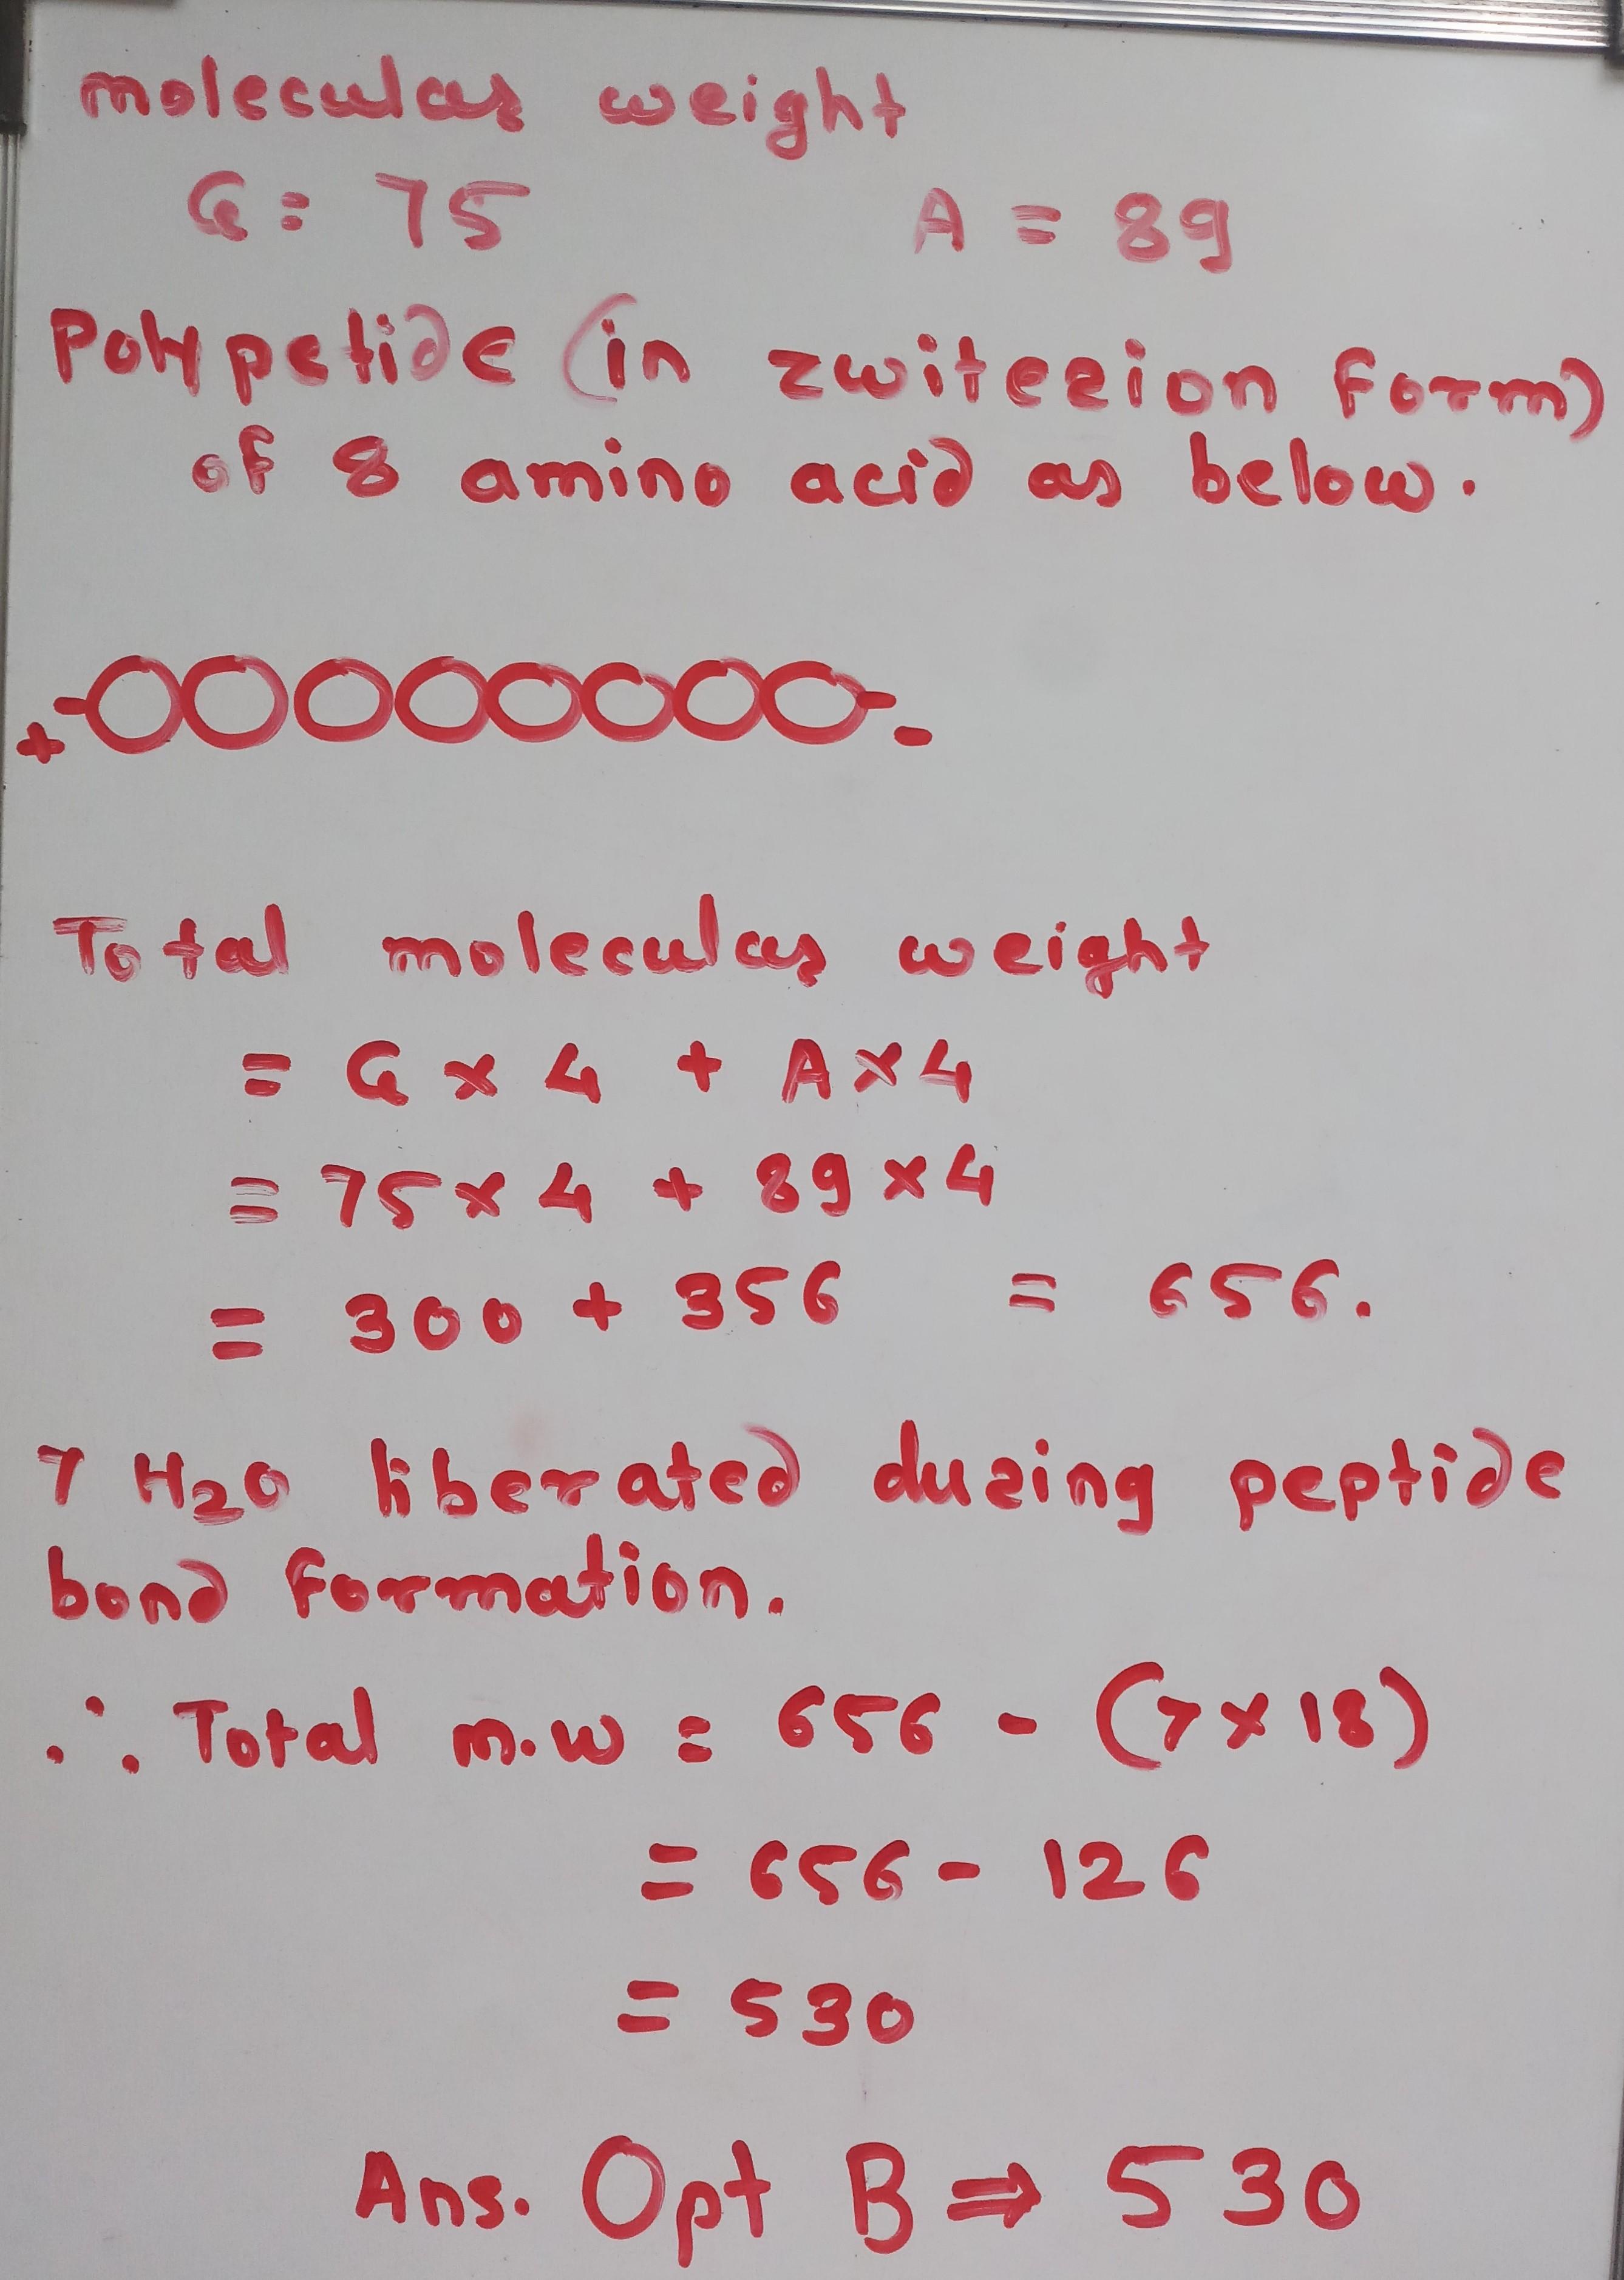 molecular weight
G = 75 A = 89
Polypetide (in zwiterion form)
of 8 amino acid as below.
+ -
Total molecular weight
= G × 4 + A × 4
= 75 × 4 + 89 × 4
= 300 + 356 = 656.
7 H2O liberated during peptide
bond formation.
∴ Total m.w = 656 - (7 × 18)
= 656 - 126
= 530
Ans. Opt B ⇒ 530